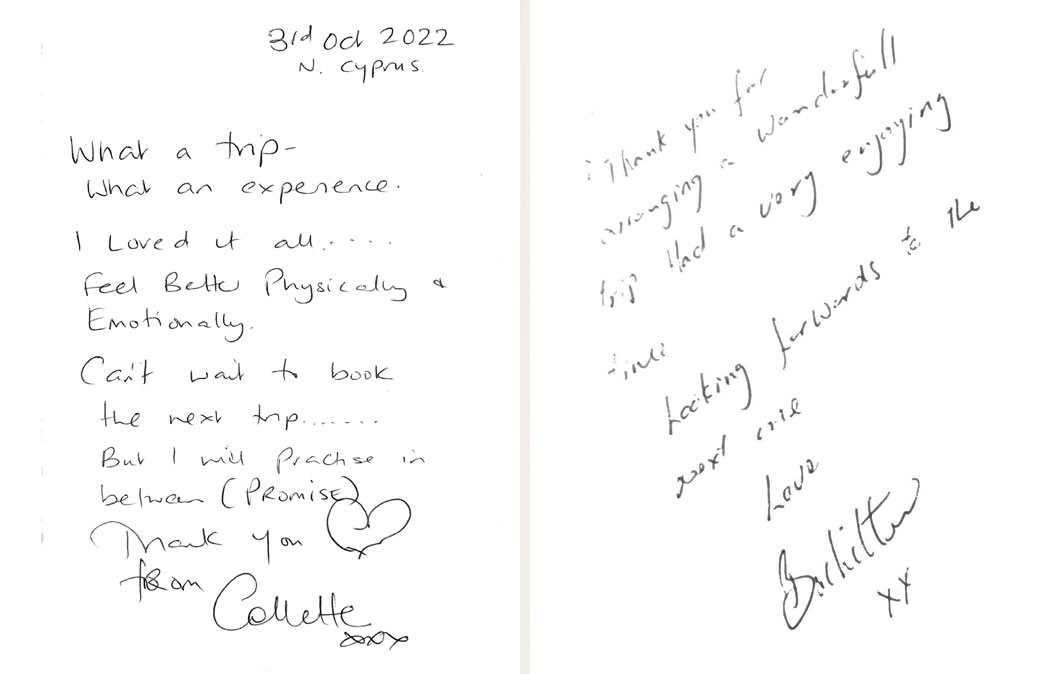 3rd Oct 2022
N. Cyprus.
What a trip-
What an experience.
I Loved it all.....
Feel Better Physically &
Emotionally.
Can't wait to book
the next trip.......
But I will Practise in
between (PROMISE)
Thank you
from
Collette
xxxx
Thank you for
arranging a wonderfull
trip Had a very enjoying
time
Looking forwards to the
next one
Love
xx